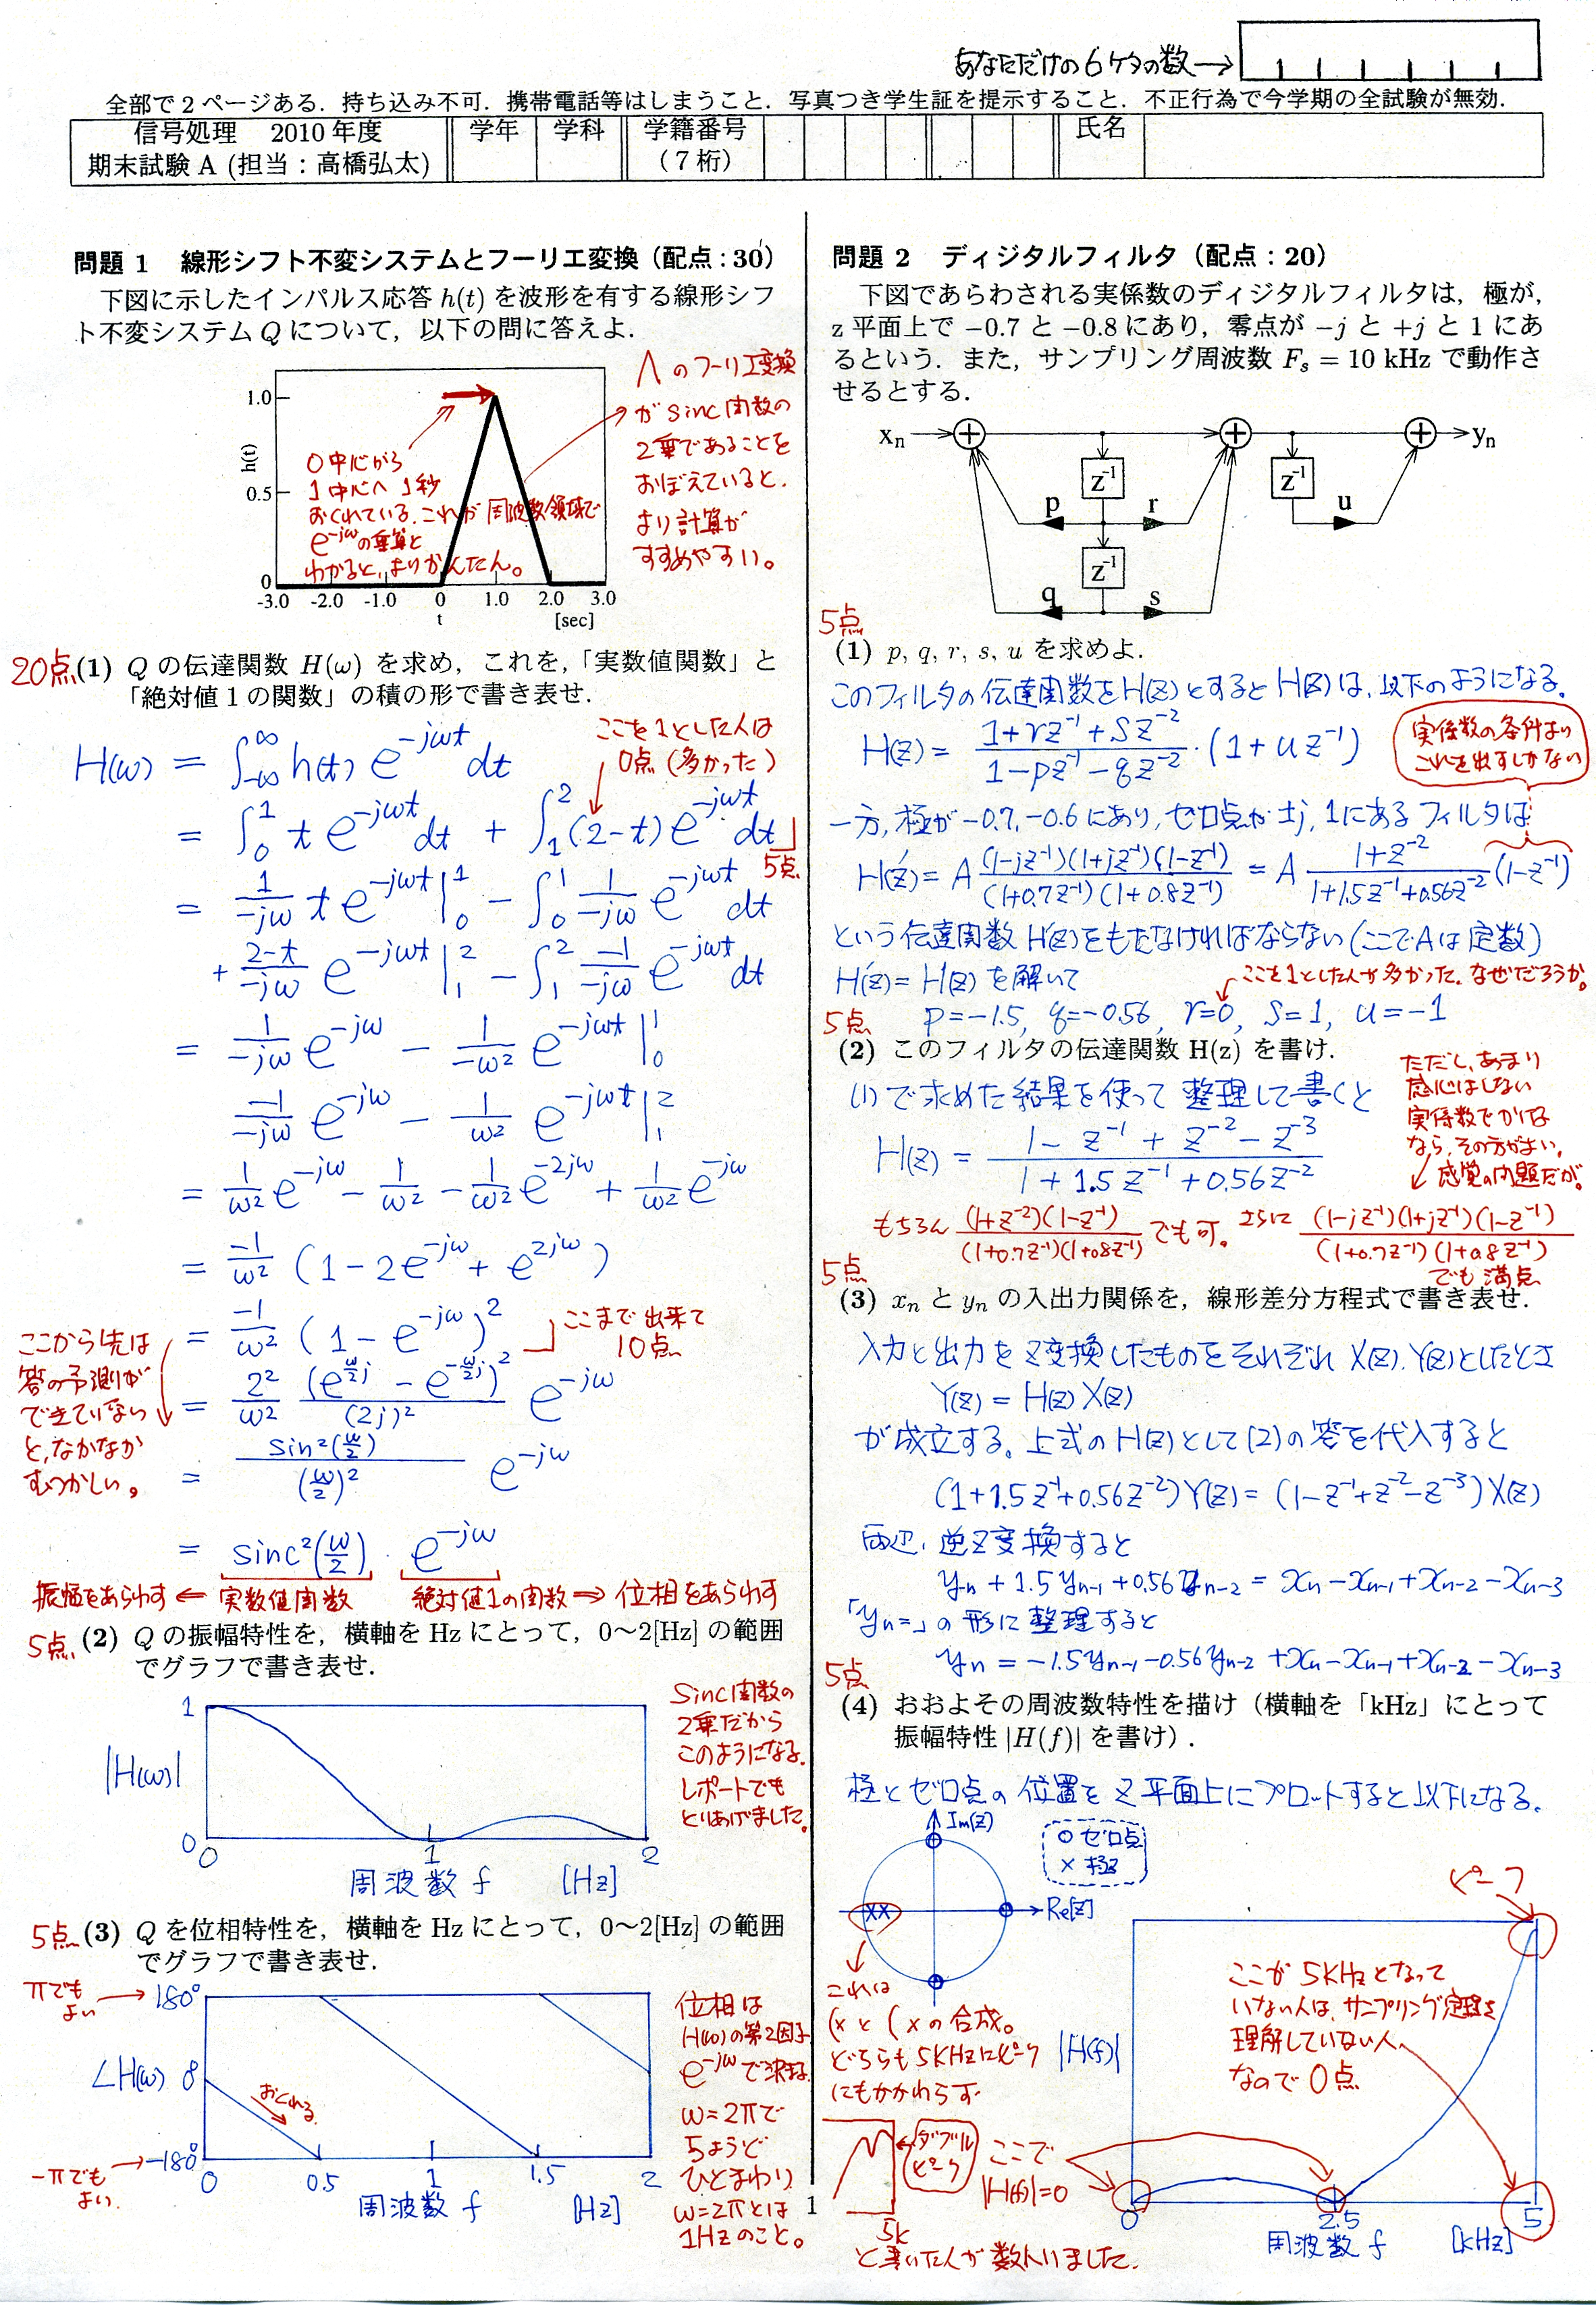 あなただけの6ケタの数→
全部で2ページある．持ち込み不可．携帯電話等はしまうこと．写真つき学生証を提示すること．不正行為で今学期の全試験が無効．
信号処理 2010年度
期末試験 A (担当：高橋弘太)
学年 学科 学籍番号（7桁） 氏名
問題 1 線形シフト不変システムとフーリエ変換（配点：30）
下図に示したインパルス応答 h(t) を波形を有する線形シフ
ト不変システム Q について，以下の問に答えよ．
1.0
0.5
0
h(t)
-3.0 -2.0 -1.0 0 1.0 2.0 3.0
t [sec]
0中心から
1中心へ1秒
おくれている.これが周波数領域で
e^{-jω}の乗算と
わかると,よりかんたん。
Λのフーリエ変換
がsinc関数の
2乗であることを
おぼえていると.
より計算が
すすめやすい。
20点 (1) Q の伝達関数 H(ω) を求め，これを，「実数値関数」と
「絶対値 1 の関数」の積の形で書き表せ．
ここを1とした人は
0点(多かった)
H(ω) = ∫_{-∞}^{∞} h(t) e^{-jωt} dt
= ∫_0^1 t e^{-jωt} dt + ∫_1^2 (2-t) e^{-jωt} dt
5点
= 1/(-jω) t e^{-jωt} |_0^1 - ∫_0^1 1/(-jω) e^{-jωt} dt
+ (2-t)/(-jω) e^{-jωt} |_1^2 - ∫_1^2 (-1)/(-jω) e^{-jωt} dt
= 1/(-jω) e^{-jω} - 1/(-ω²) e^{-jωt} |_0^1
-1/(-jω) e^{-jω} - 1/ω² e^{-jωt} |_1^2
= 1/ω² e^{-jω} - 1/ω² - 1/ω² e^{-2jω} + 1/ω² e^{-jω}
= -1/ω² (1-2e^{-jω} + e^{2jω})
= -1/ω² (1-e^{-jω})²
ここまで出来て
10点
ここから先は
答の予測が
できていない
と,なかなか
むつかしい。
= 2²/ω² (e^{ω/2 j} - e^{-ω/2 j})²/(2j)² e^{-jω}
= sin²(ω/2)/(ω/2)² e^{-jω}
= sinc²(ω/2) · e^{-jω}
振幅をあらわす ⇐ 実数値関数 絶対値1の関数 ⇒ 位相をあらわす
5点 (2) Q の振幅特性を，横軸を Hz にとって，0～2[Hz] の範囲
でグラフで書き表せ．
1
|H(ω)|
0
0 1 2
周波数 f [Hz]
sinc関数の
2乗だから
このようになる.
レポートでも
とりあげました。
5点 (3) Q を位相特性を，横軸を Hz にとって，0～2[Hz] の範囲
でグラフで書き表せ．
πでもよい → 180°
∠H(ω) 0
おくれる
-πでもよい. → -180°
0 0.5 1 1.5 2
周波数 f [Hz]
位相は
H(ω)の第2因子
e^{-jω}で決まる.
ω=2πで
ちょうど
ひとまわり
ω=2πとは
1Hzのこと。
問題 2 ディジタルフィルタ（配点：20）
下図であらわされる実係数のディジタルフィルタは，極が，
z 平面上で −0.7 と −0.8 にあり，零点が −j と +j と 1 にあ
るという．また，サンプリング周波数 F_s = 10 kHz で動作さ
せるとする．
x_n y_n
z^-1 z^-1
p r u
z^-1
q s
5点
(1) p, q, r, s, u を求めよ．
このフィルタの伝達関数をH(z)とするとH(z)は,以下のようになる。
H(z) = (1+rz^{-1}+Sz^{-2})/(1-pz^{-1}-qz^{-2}) · (1+uz^{-1})
実係数の条件より
これを出すしかない
一方,極が-0.7,-0.6にあり,ゼロ点が±j,1にあるフィルタは
H'(z) = A (1-jz^{-1})(1+jz^{-1})(1-z^{-1})/((1+0.7z^{-1})(1+0.8z^{-1})) = A (1+z^{-2})/(1+1.5z^{-1}+0.56z^{-2}) (1-z^{-1})
という伝達関数H'(z)をもたなければならない(ここでAは定数)
H'(z)=H(z)を解いて
ここを1とした人が多かった.なぜだろうか。
p=-1.5, q=-0.56, r=0, S=1, u=-1
5点
(2) このフィルタの伝達関数 H(z) を書け．
(1)で求めた結果を使って整理して書くと
H(z) = (1-z^{-1}+z^{-2}-z^{-3})/(1+1.5z^{-1}+0.56z^{-2})
ただし,あまり
感心はしない
実係数でかけな
なら,その方がよい.
感覚の問題だが。
もちろん (1+z^{-2})(1-z^{-1})/((1+0.7z^{-1})(1+0.8z^{-1})) でも可。 さらに (1-jz^{-1})(1+jz^{-1})(1-z^{-1})/((1+0.7z^{-1})(1+0.8z^{-1}))
でも満点
5点
(3) x_n と y_n の入出力関係を，線形差分方程式で書き表せ．
入力と出力をZ変換したものをそれぞれX(z),Y(z)としたとき
Y(z) = H(z) X(z)
が成立する。上式のH(z)として(2)の答を代入すると
(1+1.5z^{-1}+0.56z^{-2})Y(z) = (1-z^{-1}+z^{-2}-z^{-3})X(z)
両辺,逆Z変換すると
y_n + 1.5y_{n-1} + 0.56y_{n-2} = x_n - x_{n-1} + x_{n-2} - x_{n-3}
「y_n=」の形に整理すると
y_n = -1.5y_{n-1} - 0.56y_{n-2} + x_n - x_{n-1} + x_{n-2} - x_{n-3}
5点
(4) おおよその周波数特性を描け（横軸を「kHz」にとって
振幅特性 |H(f)| を書け）．
極とゼロ点の位置をZ平面上にプロットすると以下になる.
Im(z)
○ゼロ点
×極
Re[z]
これは
(×と(×の合成。
どちらも5kHzにピーク
にもかかわらず
ダブルピーク
5k
と書いた人が数人いました.
ピーク
ここが5kHzとなって
いない人は,サンプリング定理を
理解していない人
なので0点
|H(f)|
ここで
|H(f)|=0
0 2.5 5
周波数 f [kHz]
1